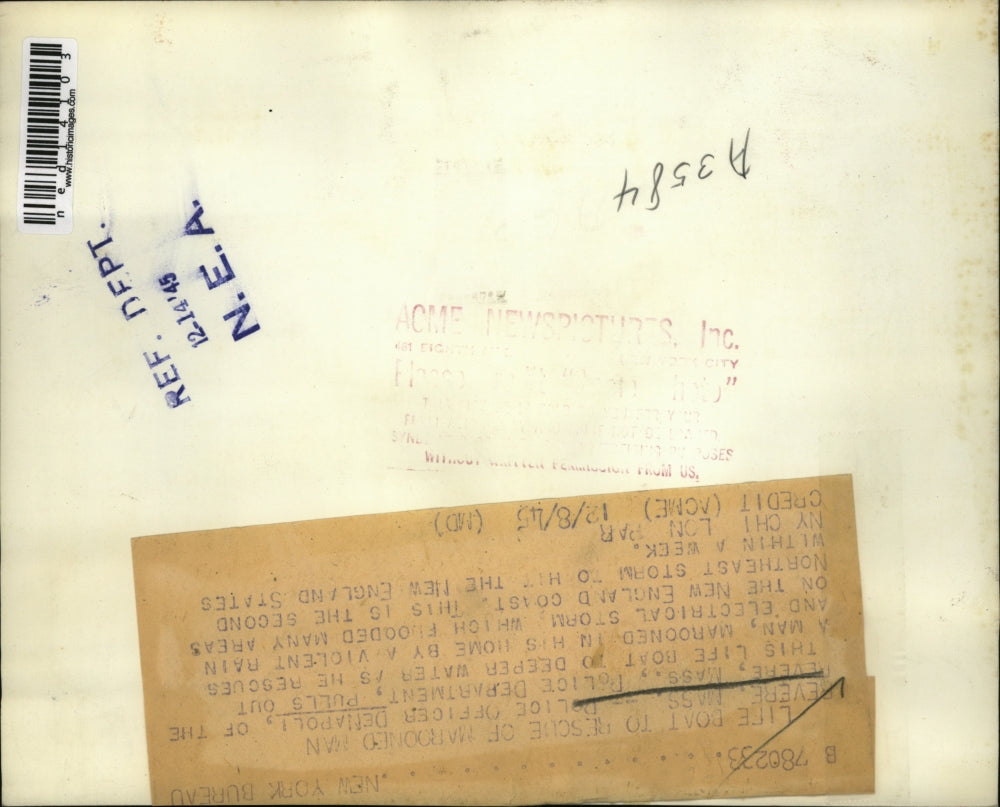 n e d 1 4 1 0 3
www.historicimages.com
REF. DEPT.
12.14'45
N.E.A.
A3584
ACME NEWSPICTURES, Inc.
461 EIGHTH
NEW YORK CITY
WITHOUT WRITTEN PERMISSION FROM US.
B 780233. . . . . . . . . . . . . NEW YORK BUREAU
LIFE BOAT TO RESCUE OF MAROONED MAN
REVERE, MASS.-- POLICE OFFICER DENAPOLI, OF THE
REVERE, MASS., POLICE DEPARTMENT, PULLS OUT
THIS LIFE BOAT TO DEEPER WATER AS HE RESCUES
A MAN, MAROONED IN HIS HOME BY A VIOLENT RAIN
AND ELECTRICAL STORM, WHICH FLOODED MANY AREAS
ON THE NEW ENGLAND COAST. THIS IS THE SECOND
NORTHEAST STORM TO HIT THE NEW ENGLAND STATES
WITHIN A WEEK.
NY CHI LON PAR
CREDIT (ACME) 12/8/45 (MD)